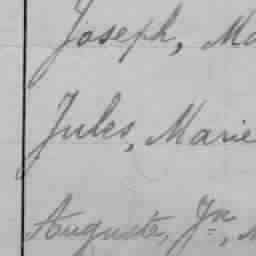 Joseph, Ma
Jules, Marie
Auguste, Jn, M